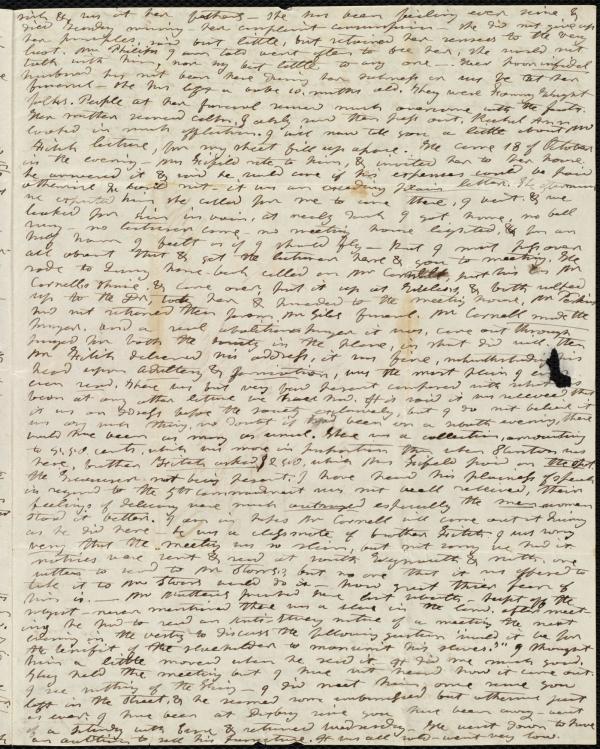 sick & was at her fathers — She has been failing ever since &
died Sunday morning her complaint consumption. She did not give up
her principles said but little, but retained her senses to the very
last. Mr Philips Swan told went often to see her, she would not
talk with him, nor say but little to any one — Her poor
husband has not been here during her sickness or was he at her
funeral — She has left a babe 10 months old. They were Fanny Wright
folks. People at her funeral seemed much overcome with the
Her mother seemed calm, I only saw them pass out. Rachel Ann
looked in much affliction. I will now tell you a little about Mr
Fitch's lecture, for my sheet fills up apace. He came 18 of October
in the evening — Mrs Fifield rote to him, & invited her to her house.
he answered it & said he would come if his expenses could be paid
otherwise he would not it was an exceeding plain letter. The afternoon
we expected him she called for me to come there, I went & we
looked for him in vain, at nearly dark I got home, no bell
rung — no lecturer come — no meeting house lighted, & for an
half hour I felt as if I should fly — But I must pass over
all about that & get the lecturer here & you to meeting. He
rode to Quincy horse-back called on Mr Cornell, put his in Mr
Cornells & came over, put it up at , & both walked
up to the Dr, took her & proceeded to the meeting house, Mr Perkins
had not returned then from Mr Giles funeral. Mr Cornell made the
prayer. and a real abolition prayer it was, came out through
prayed for both the society in the place, in short did well, then
Mr Fitch delivered his address, it was fine, notwithstanding his
head upon Adultery & fornication, was the most plain I
ever read. There was but very few present compared with what has
been at any other lecture we have had. It is said it was received that
it was an address before the society exclusively, but I do not believe it
was any such thing, no doubt if it had been on a sabbath evening, there
would have been as many as usual. There was a collection, amounting
to 9,50 cents, which was more in proportion than when Stanton was
here, brother Fitch asked $ 2.50, which Mrs Fifield paid on the spot.
the Treasurer not being present. I have heard his plainness of speech
in regard to the 7th commandment was not well received, their
feelings of delicacy were much outraged especially the men women
stood it better. I am in hopes Mr Cornell will come out at Quincy
as he did here — he was a classmate of brother Fitch. I was sorry
very that the meeting was so slim, but not sorry we had it
notices were sent & read at south Weymouth & north, one
written to send to Mr Storrs, but no one that it was offered to
take it to Mr Storrs would do it — how great their fear of
him is — Mr Matthews preached here last sabbath, kept off the
subject — never mentioned there was a slave in the land, after meet-
ing he had to read an Anti-Slavery notice of a meeting the next
evening in the vestry to discuss the following question "would it be for
the benefit of the slaveholder to manumit his slaves?" I thought
him a little moved when he read it. It did me much good.
They held the meeting but I have not heard how it came out.
I see nothing of the Gray — I did meet him once since you
left in the street, & he seemed some embarrassed but otherwise just
as ever. I have been at Derby since you have been away — went
of a Saturday with Jane & returned Wednesday — We went down to have
an auction to sell his furniture. It was all sold — went very low.